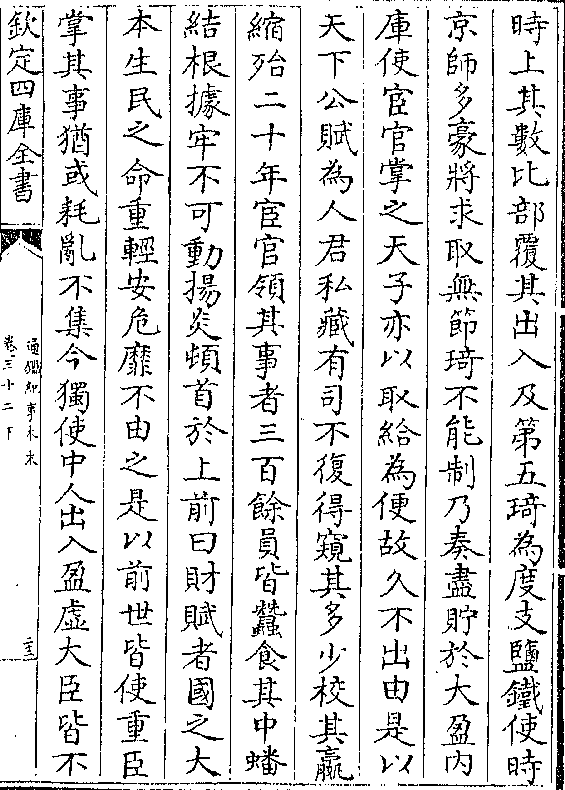 時上其數比部覆其出入及第五琦為度支鹽鐵使時
京師多豪將求取無節琦不能制乃奏盡貯於大盈内
庫使宦官掌之天子亦以取給為便故久不出由是以
天下公賦為人君私藏有司不復得窺其多少校其贏
縮殆二十年宦官領其事者三百餘員皆蠶食其中蟠
結根據牢不可動揚炎頓首於上前曰財賦者國之大
本生民之命重輕安危靡不由之是以前世皆使重臣
掌其事猶或耗亂不集今獨使中人出入盈虛大臣皆不
欽定四庫全書
通鑑紀事本末
卷三十二下